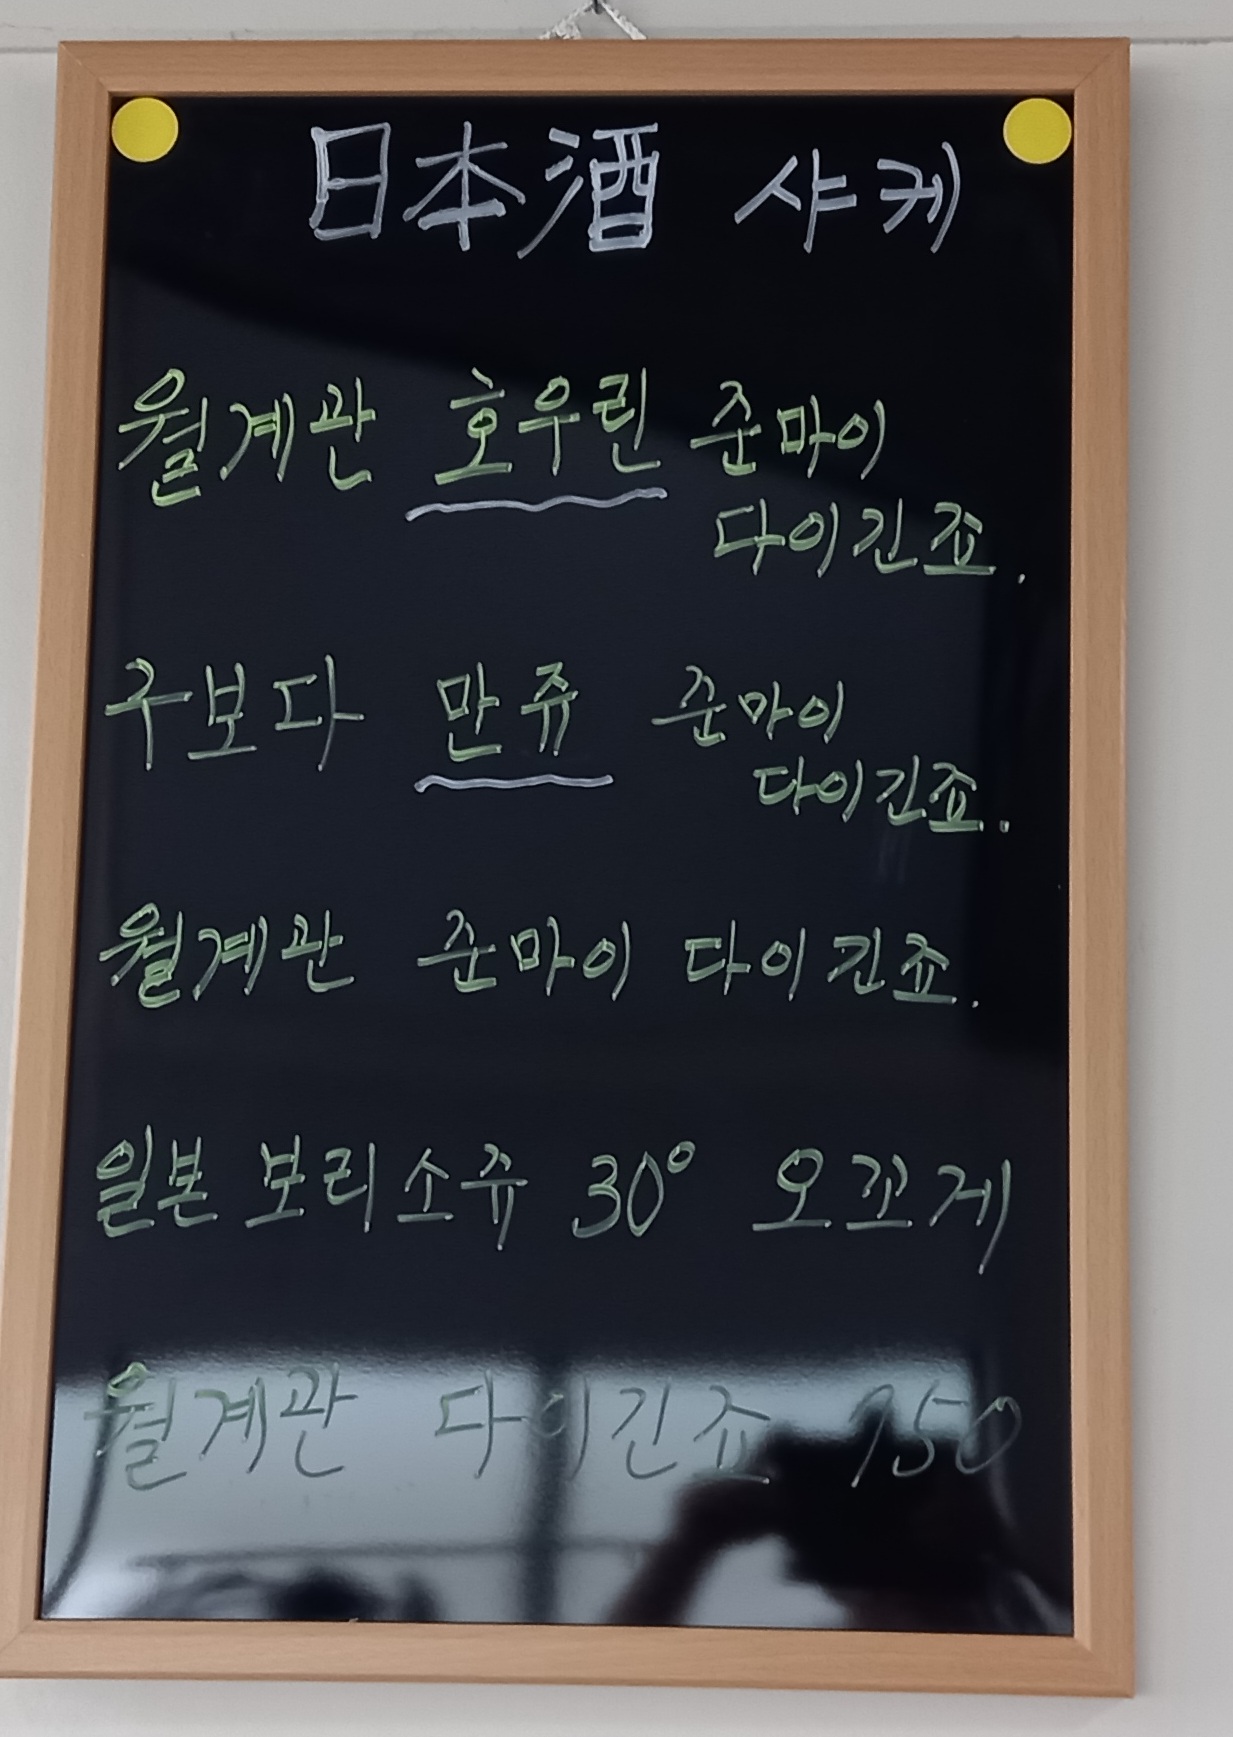 日本酒 샤케
월계관 호우린 준마이
다이긴죠.
구보다 만쥬 준마이
다이긴죠.
월계관 준마이 다이긴죠.
일본 보리소쥬 30° 오꼬게
월계관 다이긴죠 750